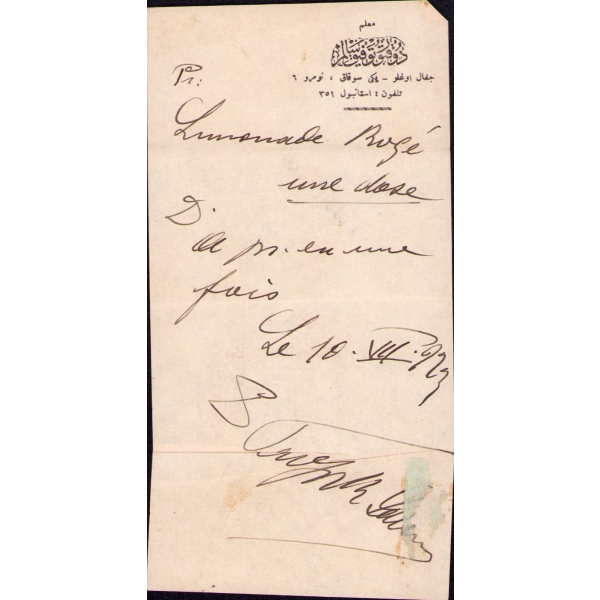 معلم
دوقتور توفيق سالم
جغال اوغلو – يكى سوقاق ، نومرو ٦
تلفون : استانبول ٣٥١
Pr:
Limonade Rogé
une dose
D.
A pr. en une
fois
Le 10. VII. 923
Dr Tewfik Salim